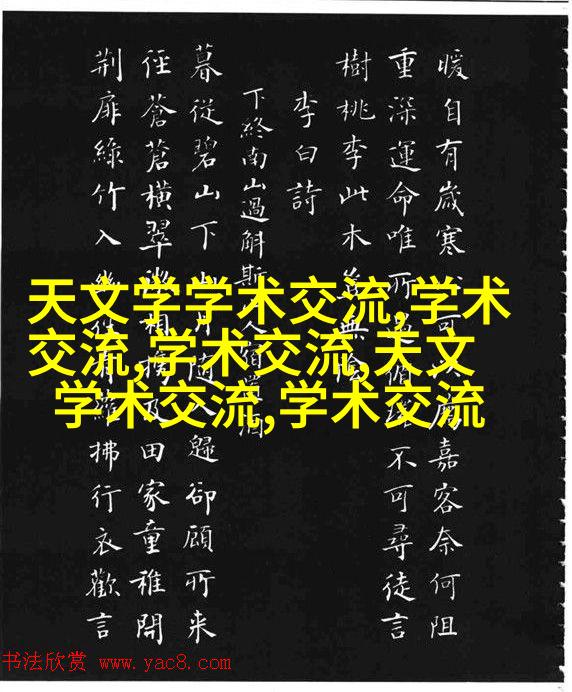 暖自有歲寒可嘉客奈何阻
重深運命唯所不可尋徒言
樹桃李此木無
李白詩
下終南山過斛斯人宿
暮從碧山下月隨歸卻顧所来
徑蒼蒼橫翠相攜及田家童稚開
荆扉綠竹入拂行衣歡言
天文学学术交流,学术
交流,学术交流,天文
学术交流,学术交流
书法欣赏 www.yac8.com